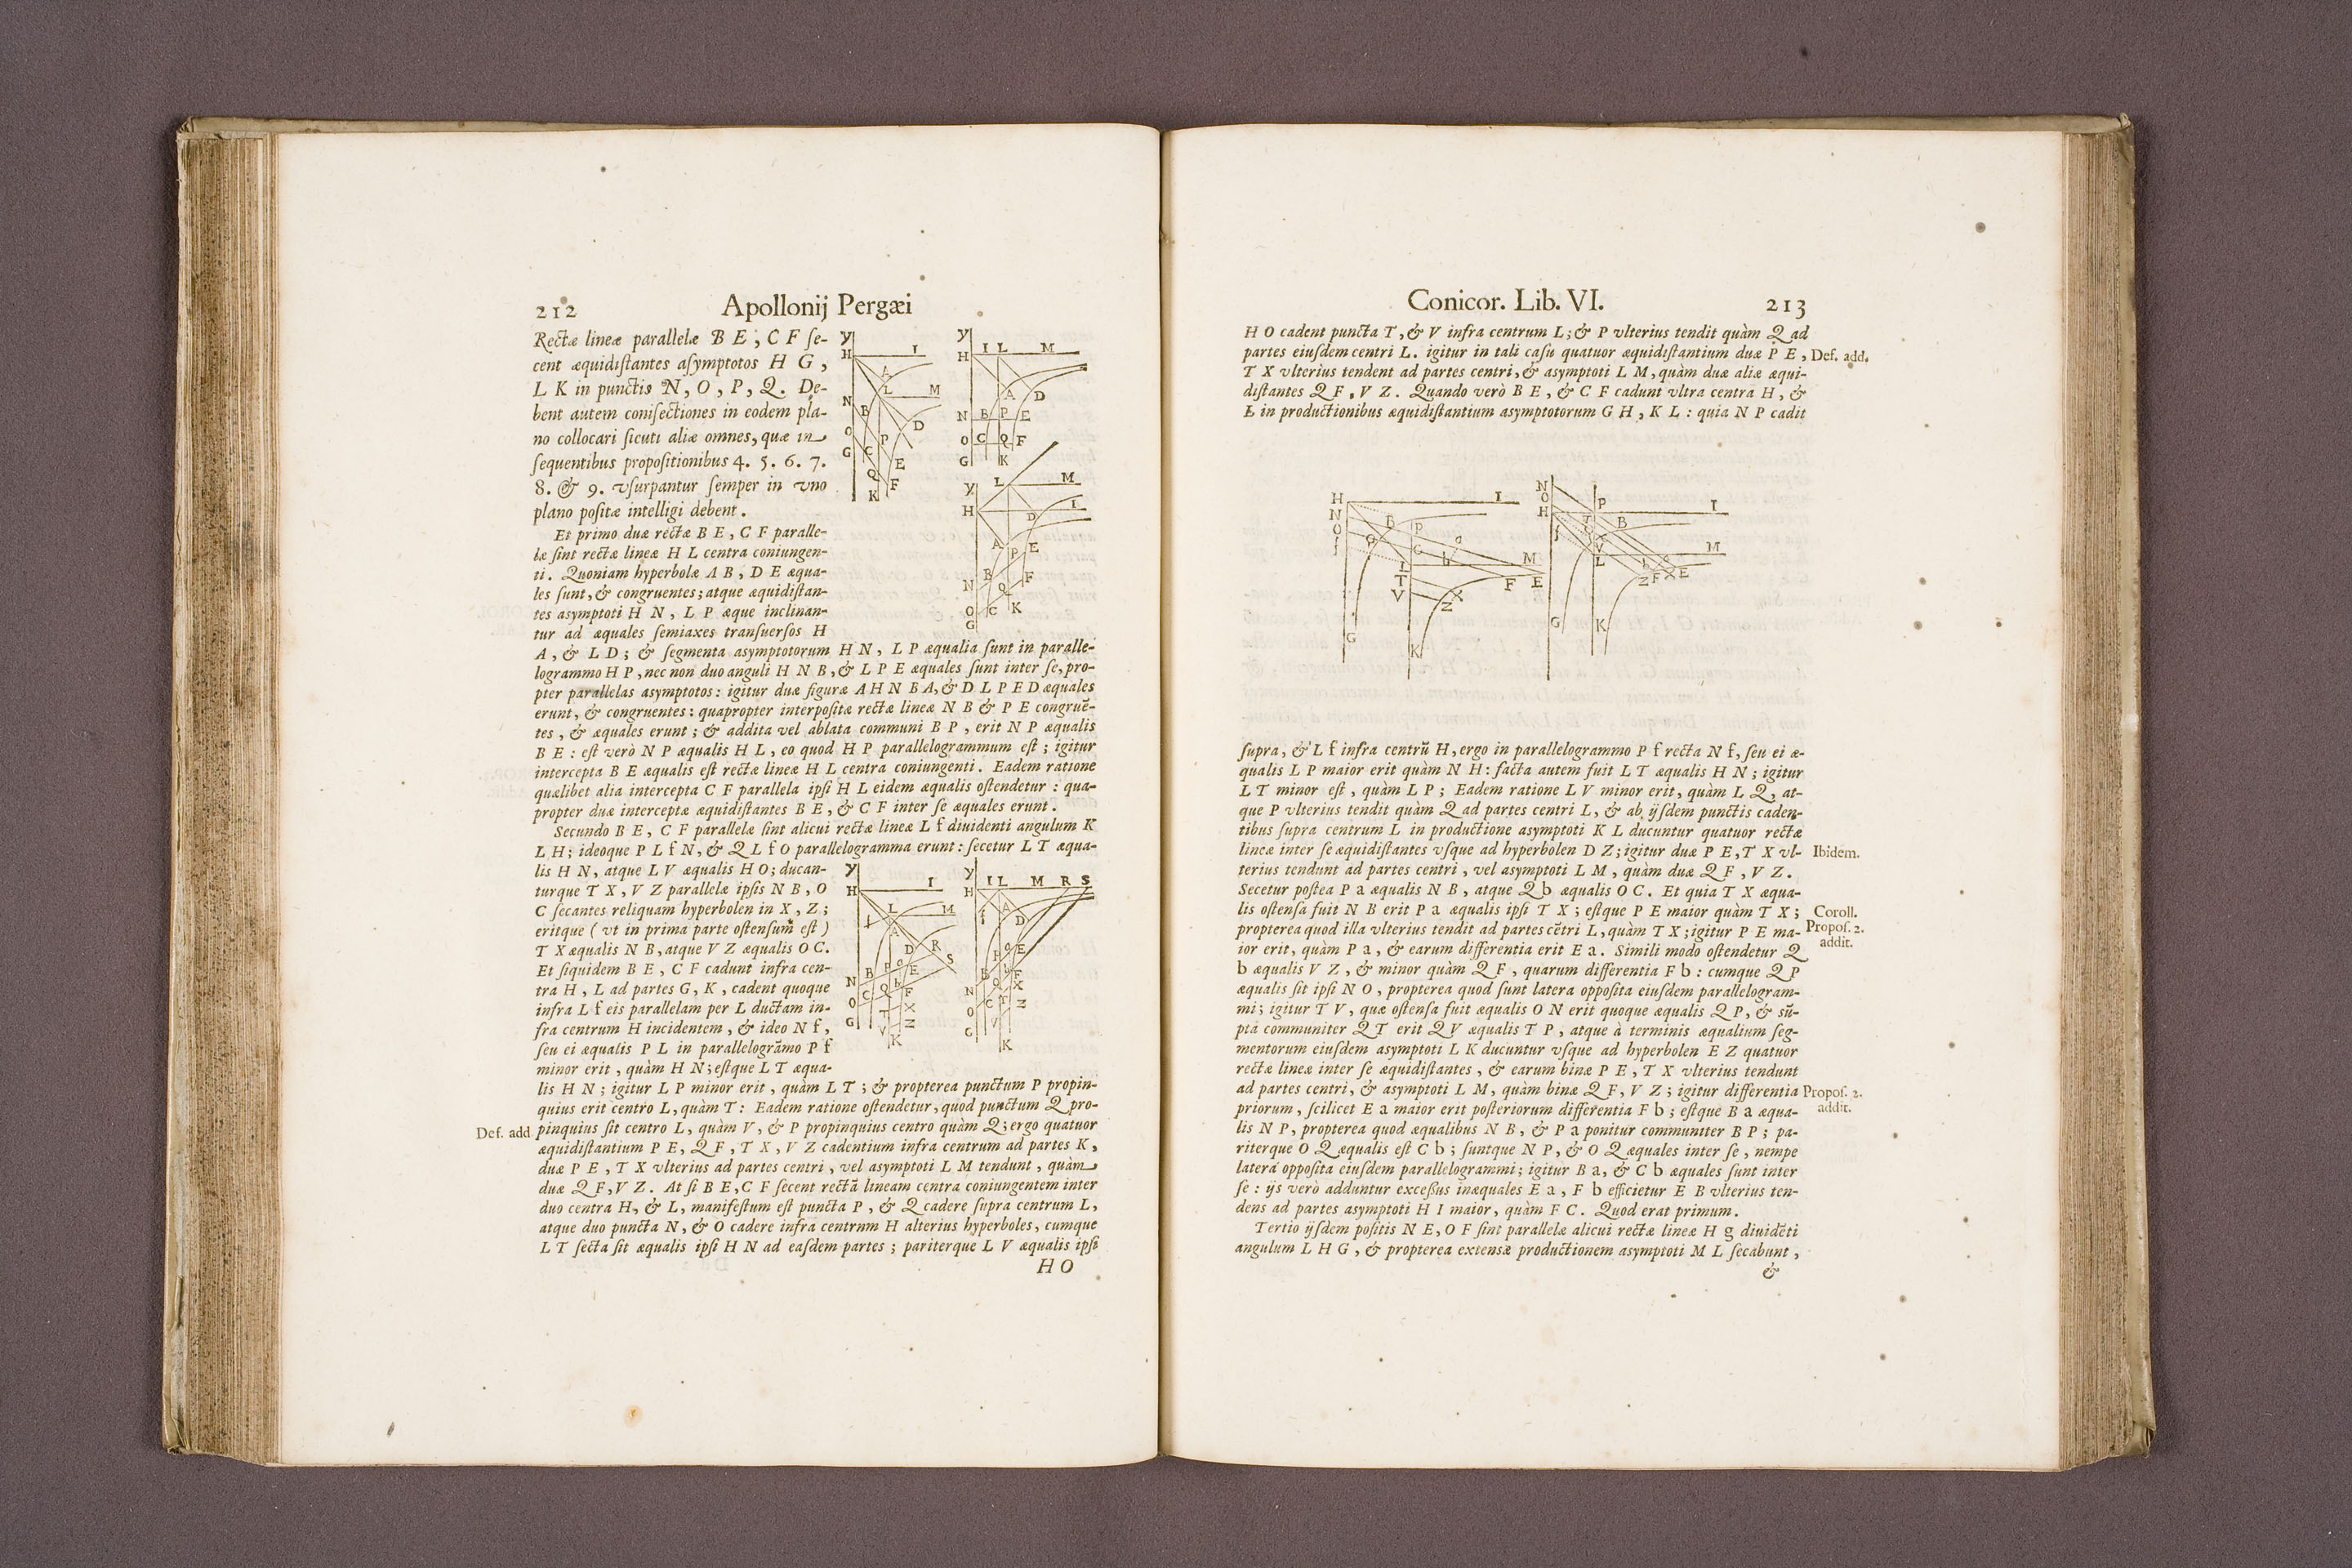 212 Apollonij Pergæi
Rectæ lineæ parallelæ B E, C F ſe-
cent æquidiſtantes aſymptotos H G,
L K in punctis N, O, P, Q. De-
bent autem coniſectiones in eodem pla-
no collocari ſicuti aliæ omnes, quæ in
ſequentibus propoſitionibus 4. 5. 6. 7.
8. & 9. vſurpantur ſemper in vno
plano poſitæ intelligi debent.
Et primo duæ rectæ B E, C F paralle-
læ ſint rectæ lineæ H L centra coniungen-
ti. Quoniam hyperbolæ A B, D E æqua-
les ſunt, & congruentes; atque æquidiſtan-
tes asymptoti H N, L P æque inclinan-
tur ad æquales ſemiaxes tranſuerſos H
A, & L D; & ſegmenta asymptotorum H N, L P æqualia ſunt in paralle-
logrammo H P, nec non duo anguli H N B, & L P E æquales ſunt inter ſe, pro-
pter parallelas asymptotos: igitur duæ figuræ A H N B A, & D L P E D æquales
erunt, & congruentes: quapropter interpoſitæ rectæ lineæ N B & P E congruẽ-
tes, & æquales erunt; & addita vel ablata communi B P, erit N P æqualis
B E: eſt verò N P æqualis H L, eo quod H P parallelogrammum eſt; igitur
intercepta B E æqualis eſt rectæ lineæ H L centra coniungenti. Eadem ratione
quælibet alia intercepta C F parallela ipſi H L eidem æqualis oſtendetur: qua-
propter duæ interceptæ æquidiſtantes B E, & C F inter ſe æquales erunt.
Secundo B E, C F parallelæ ſint alicui rectæ lineæ L f diuidenti angulum K
L H; ideoque P L f N, & Q L f O parallelogramma erunt: ſecetur L T æqua-
lis H N, atque L V æqualis H O; ducan-
turque T X, V Z parallelæ ipſis N B, O
C ſecantes reliquam hyperbolen in X, Z;
eritque (vt in prima parte oſtenſum eſt)
T X æqualis N B, atque V Z æqualis O C.
Et ſiquidem B E, C F cadunt infra cen-
tra H, L ad partes G, K, cadent quoque
infra L f eis parallelam per L ductam in-
fra centrum H incidentem, & ideo N f,
ſeu ei æqualis P L in parallelogrãmo P f
minor erit, quàm H N; eſtque L T æqua-
lis H N; igitur L P minor erit, quàm L T; & propterea punctum P propin-
quius erit centro L, quàm T: Eadem ratione oſtendetur, quod punctum Q pro-
Def. add pinquius ſit centro L, quàm V, & P propinquius centro quàm Q; ergo quatuor
æquidiſtantium P E, Q F, T X, V Z cadentium infra centrum ad partes K,
duæ P E, T X vlterius ad partes centri, vel asymptoti L M tendunt, quàm
duæ Q F, V Z. At ſi B E, C F ſecent rectã lineam centra coniungentem inter
duo centra H, & L, manifeſtum eſt puncta P, & Q cadere ſupra centrum L,
atque duo puncta N, & O cadere infra centrnm H alterius hyperboles, cumque
L T ſecta ſit æqualis ipſi H N ad eaſdem partes; pariterque L V æqualis ipſi
H O
Conicor. Lib. VI. 213
H O cadent puncta T, & V infra centrum L; & P vlterius tendit quàm Q ad
partes eiuſdem centri L. igitur in tali caſu quatuor æquidiſtantium duæ P E, Def. add.
T X vlterius tendent ad partes centri, & asymptoti L M, quàm duæ aliæ æqui-
diſtantes Q F, V Z. Quando verò B E, & C F cadunt vltra centra H, &
L in productionibus æquidiſtantium asymptotorum G H, K L: quia N P cadit
ſupra, & L f infra centrũ H, ergo in parallelogrammo P f recta N f, ſeu ei æ-
qualis L P maior erit quàm N H: facta autem fuit L T æqualis H N; igitur
L T minor eſt, quàm L P; Eadem ratione L V minor erit, quàm L Q, at-
que P vlterius tendit quàm Q ad partes centri L, & ab ijſdem punctis caden-
tibus ſupra centrum L in productione asymptoti K L ducuntur quatuor rectæ
lineæ inter ſe æquidiſtantes vſque ad hyperbolen D Z; igitur duæ P E, T X vl- Ibidem.
terius tendunt ad partes centri, vel asymptoti L M, quàm duæ Q F, V Z.
Secetur poſtea P a æqualis N B, atque Q b æqualis O C. Et quia T X æqua-
lis oſtenſa fuit N B erit P a æqualis ipſi T X; eſtque P E maior quàm T X; Coroll.
propterea quod illa vlterius tendit ad partes cẽtri L, quàm T X; igitur P E ma- Propoſ. 2.
ior erit, quàm P a, & earum differentia erit E a. Simili modo oſtendetur Q addit.
b æqualis V Z, & minor quàm Q F, quarum differentia F b: cumque Q P
æqualis ſit ipſi N O, propterea quod ſunt latera oppoſita eiuſdem parallelogram-
mi; igitur T V, quæ oſtenſa fuit æqualis O N erit quoque æqualis Q P, & ſũ-
pta communiter Q T erit Q V æqualis T P, atque à terminis æqualium ſeg-
mentorum eiuſdem asymptoti L K ducuntur vſque ad hyperbolen E Z quatuor
rectæ lineæ inter ſe æquidiſtantes, & earum binæ P E, T X vlterius tendunt
ad partes centri, & asymptoti L M, quàm binæ Q F, V Z; igitur differentia Propoſ. 2.
priorum, ſcilicet E a maior erit poſteriorum differentia F b; eſtque B a æqua- addit.
lis N P, propterea quod æqualibus N B, & P a ponitur communiter B P; pa-
riterque O Q æqualis eſt C b; ſuntque N P, & O Q æquales inter ſe, nempe
latera oppoſita eiuſdem parallelogrammi; igitur B a, & C b æquales ſunt inter
ſe: ijs verò adduntur exceßus inæquales E a, F b efficietur E B vlterius ten-
dens ad partes asymptoti H I maior, quàm F C. Quod erat primum.
Tertio ijſdem poſitis N E, O F ſint parallelæ alicui rectæ lineæ H g diuidẽti
angulum L H G, & propterea extensæ productionem asymptoti M L ſecabunt,
&